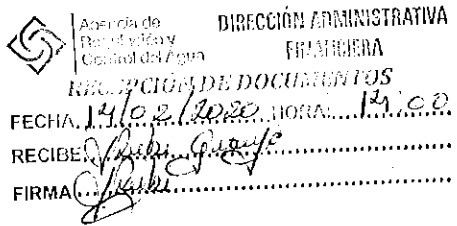 Agencia de
Regulación y
Control del Agua
DIRECCIÓN ADMINISTRATIVA
FINANCIERA
RECEPCIÓN DE DOCUMENTOS
FECHA 14/02/2020 HORA: 14:00
RECIBE
FIRMA